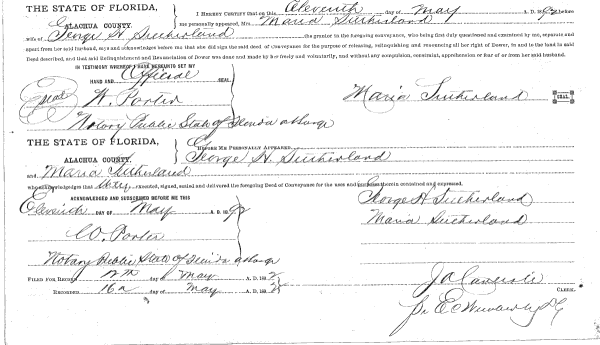 THE STATE OF FLORIDA,
ALACHUA COUNTY.
I HEREBY CERTIFY that on this Eleventh day of May A. D. 1892 before
me personally appeared, Mrs. Maria Sutherland
wife of George H. Sutherland the grantor in the foregoing conveyance, who being first duly questioned and examined by me, separate and
apart from her said husband, says and acknowledges before me that she did sign the said deed of conveyance for the purpose of releasing, relinquishing and renouncing all her right of Dower, in and to the land in said
Deed described, and that said Relinquishment and Renunciation of Dower was done and made by her freely and voluntarily, and without any compulsion, constraint, apprehension or fear of or from her said husband.
IN TESTIMONY WHEREOF I HAVE HEREUNTO SET MY
HAND AND Official SEAL
Seal W. Porter
Maria Sutherland SEAL
Notary Public State of Florida at Large
THE STATE OF FLORIDA,
ALACHUA COUNTY.
BEFORE ME PERSONALLY APPEARED
George H. Sutherland
and Maria Sutherland
who acknowledges that they executed, signed, sealed and delivered the foregoing Deed of Conveyance for the uses and purposes therein contained and expressed.
ACKNOWLEDGED AND SUBSCRIBED BEFORE ME THIS
Eleventh DAY OF May A. D. 1892
George H Sutherland
Maria Sutherland
W. Porter
Notary Public State of Florida at Large
FILED FOR RECORD 12th day of May A. D. 1892
RECORDED 16th day of May A. D. 1892
CLERK.